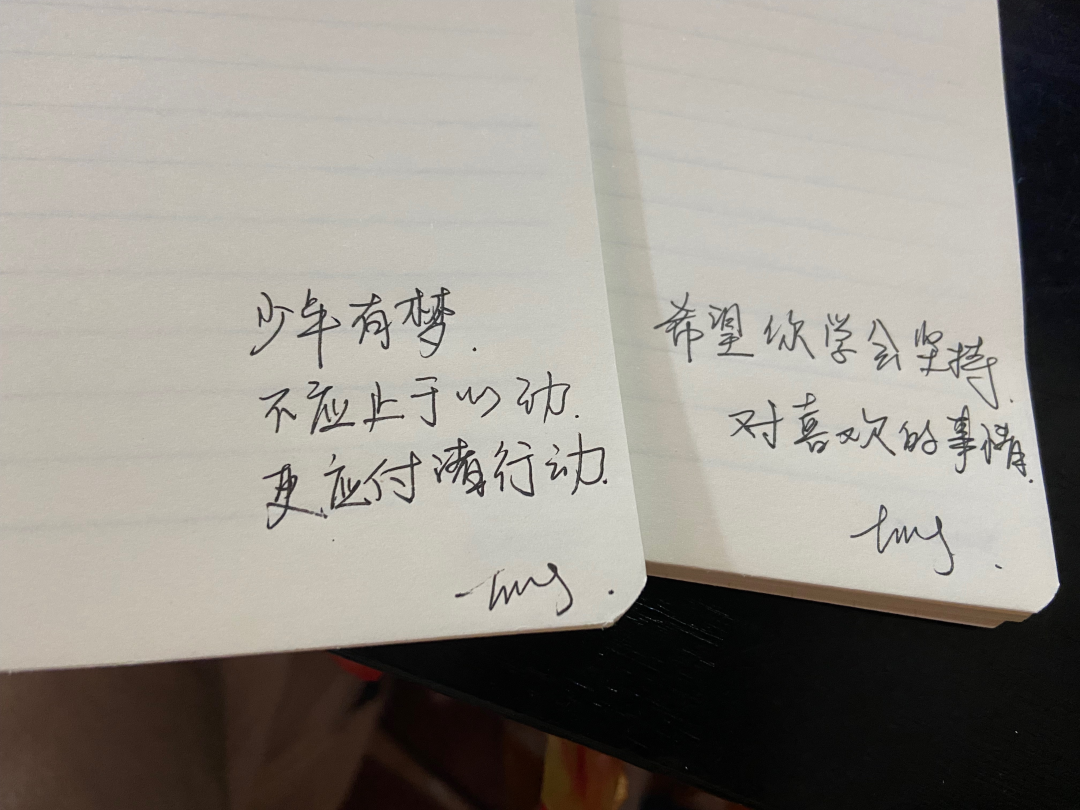 少年有梦.
不应止于心动.
更应付诸行动.
希望你学会坚持.
对喜欢的事情.